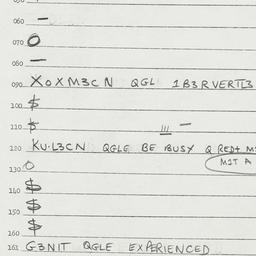 050
060 —
070 O
080 —
090 XOXM3CN QGL 1B3RVERTL3
100 $
110 $
120 KU·L3CN QGLE BE BUSY Q RED+ M
M1T A
130 O
140 $
150 $
160 $
161 G3NIT QGLE EXPERIENCED